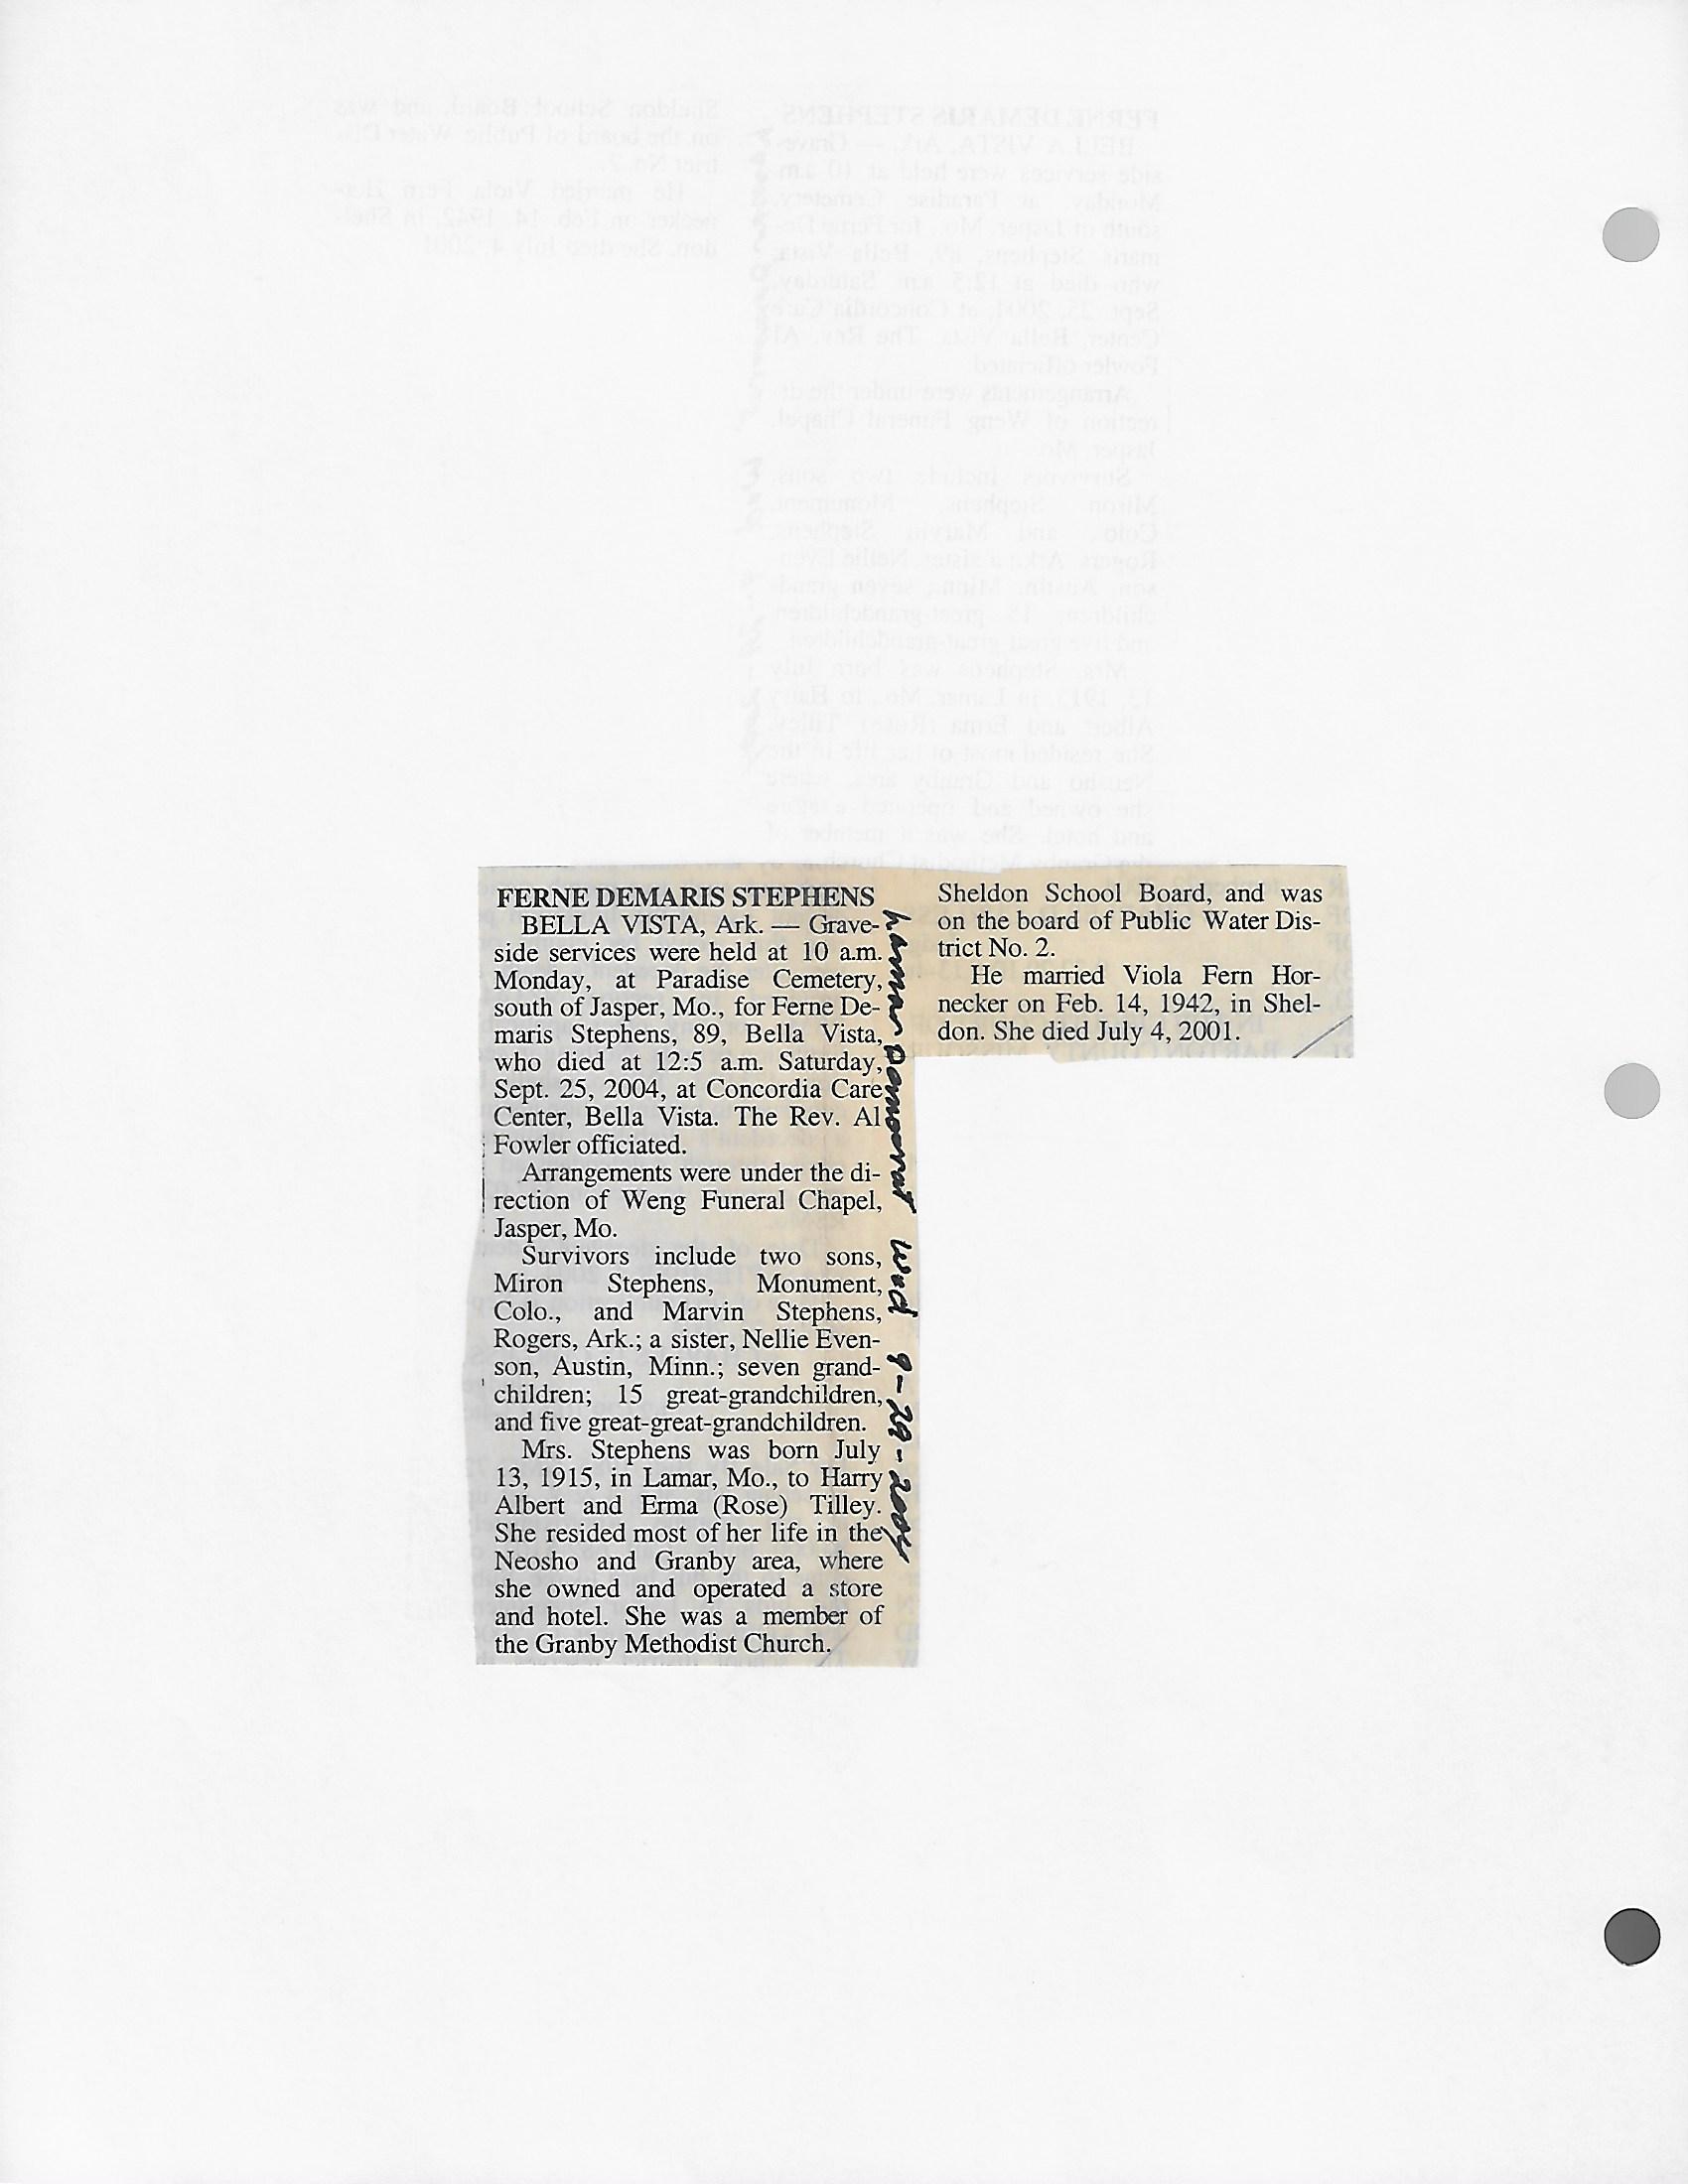 FERNE DEMARIS STEPHENS
BELLA VISTA, Ark. — Grave-
side services were held at 10 a.m.
Monday, at Paradise Cemetery,
south of Jasper, Mo., for Ferne De-
maris Stephens, 89, Bella Vista,
who died at 12:5 a.m. Saturday,
Sept. 25, 2004, at Concordia Care
Center, Bella Vista. The Rev. Al
Fowler officiated.
Arrangements were under the di-
rection of Weng Funeral Chapel,
Jasper, Mo.
Survivors include two sons,
Miron Stephens, Monument,
Colo., and Marvin Stephens,
Rogers, Ark.; a sister, Nellie Even-
son, Austin, Minn.; seven grand-
children; 15 great-grandchildren,
and five great-great-grandchildren.
Mrs. Stephens was born July
13, 1915, in Lamar, Mo., to Harry
Albert and Erma (Rose) Tilley.
She resided most of her life in the
Neosho and Granby area, where
she owned and operated a store
and hotel. She was a member of
the Granby Methodist Church.
Lamar Democrat Wed 9-29-2004
Sheldon School Board, and was
on the board of Public Water Dis-
trict No. 2.
He married Viola Fern Hor-
necker on Feb. 14, 1942, in Shel-
don. She died July 4, 2001.